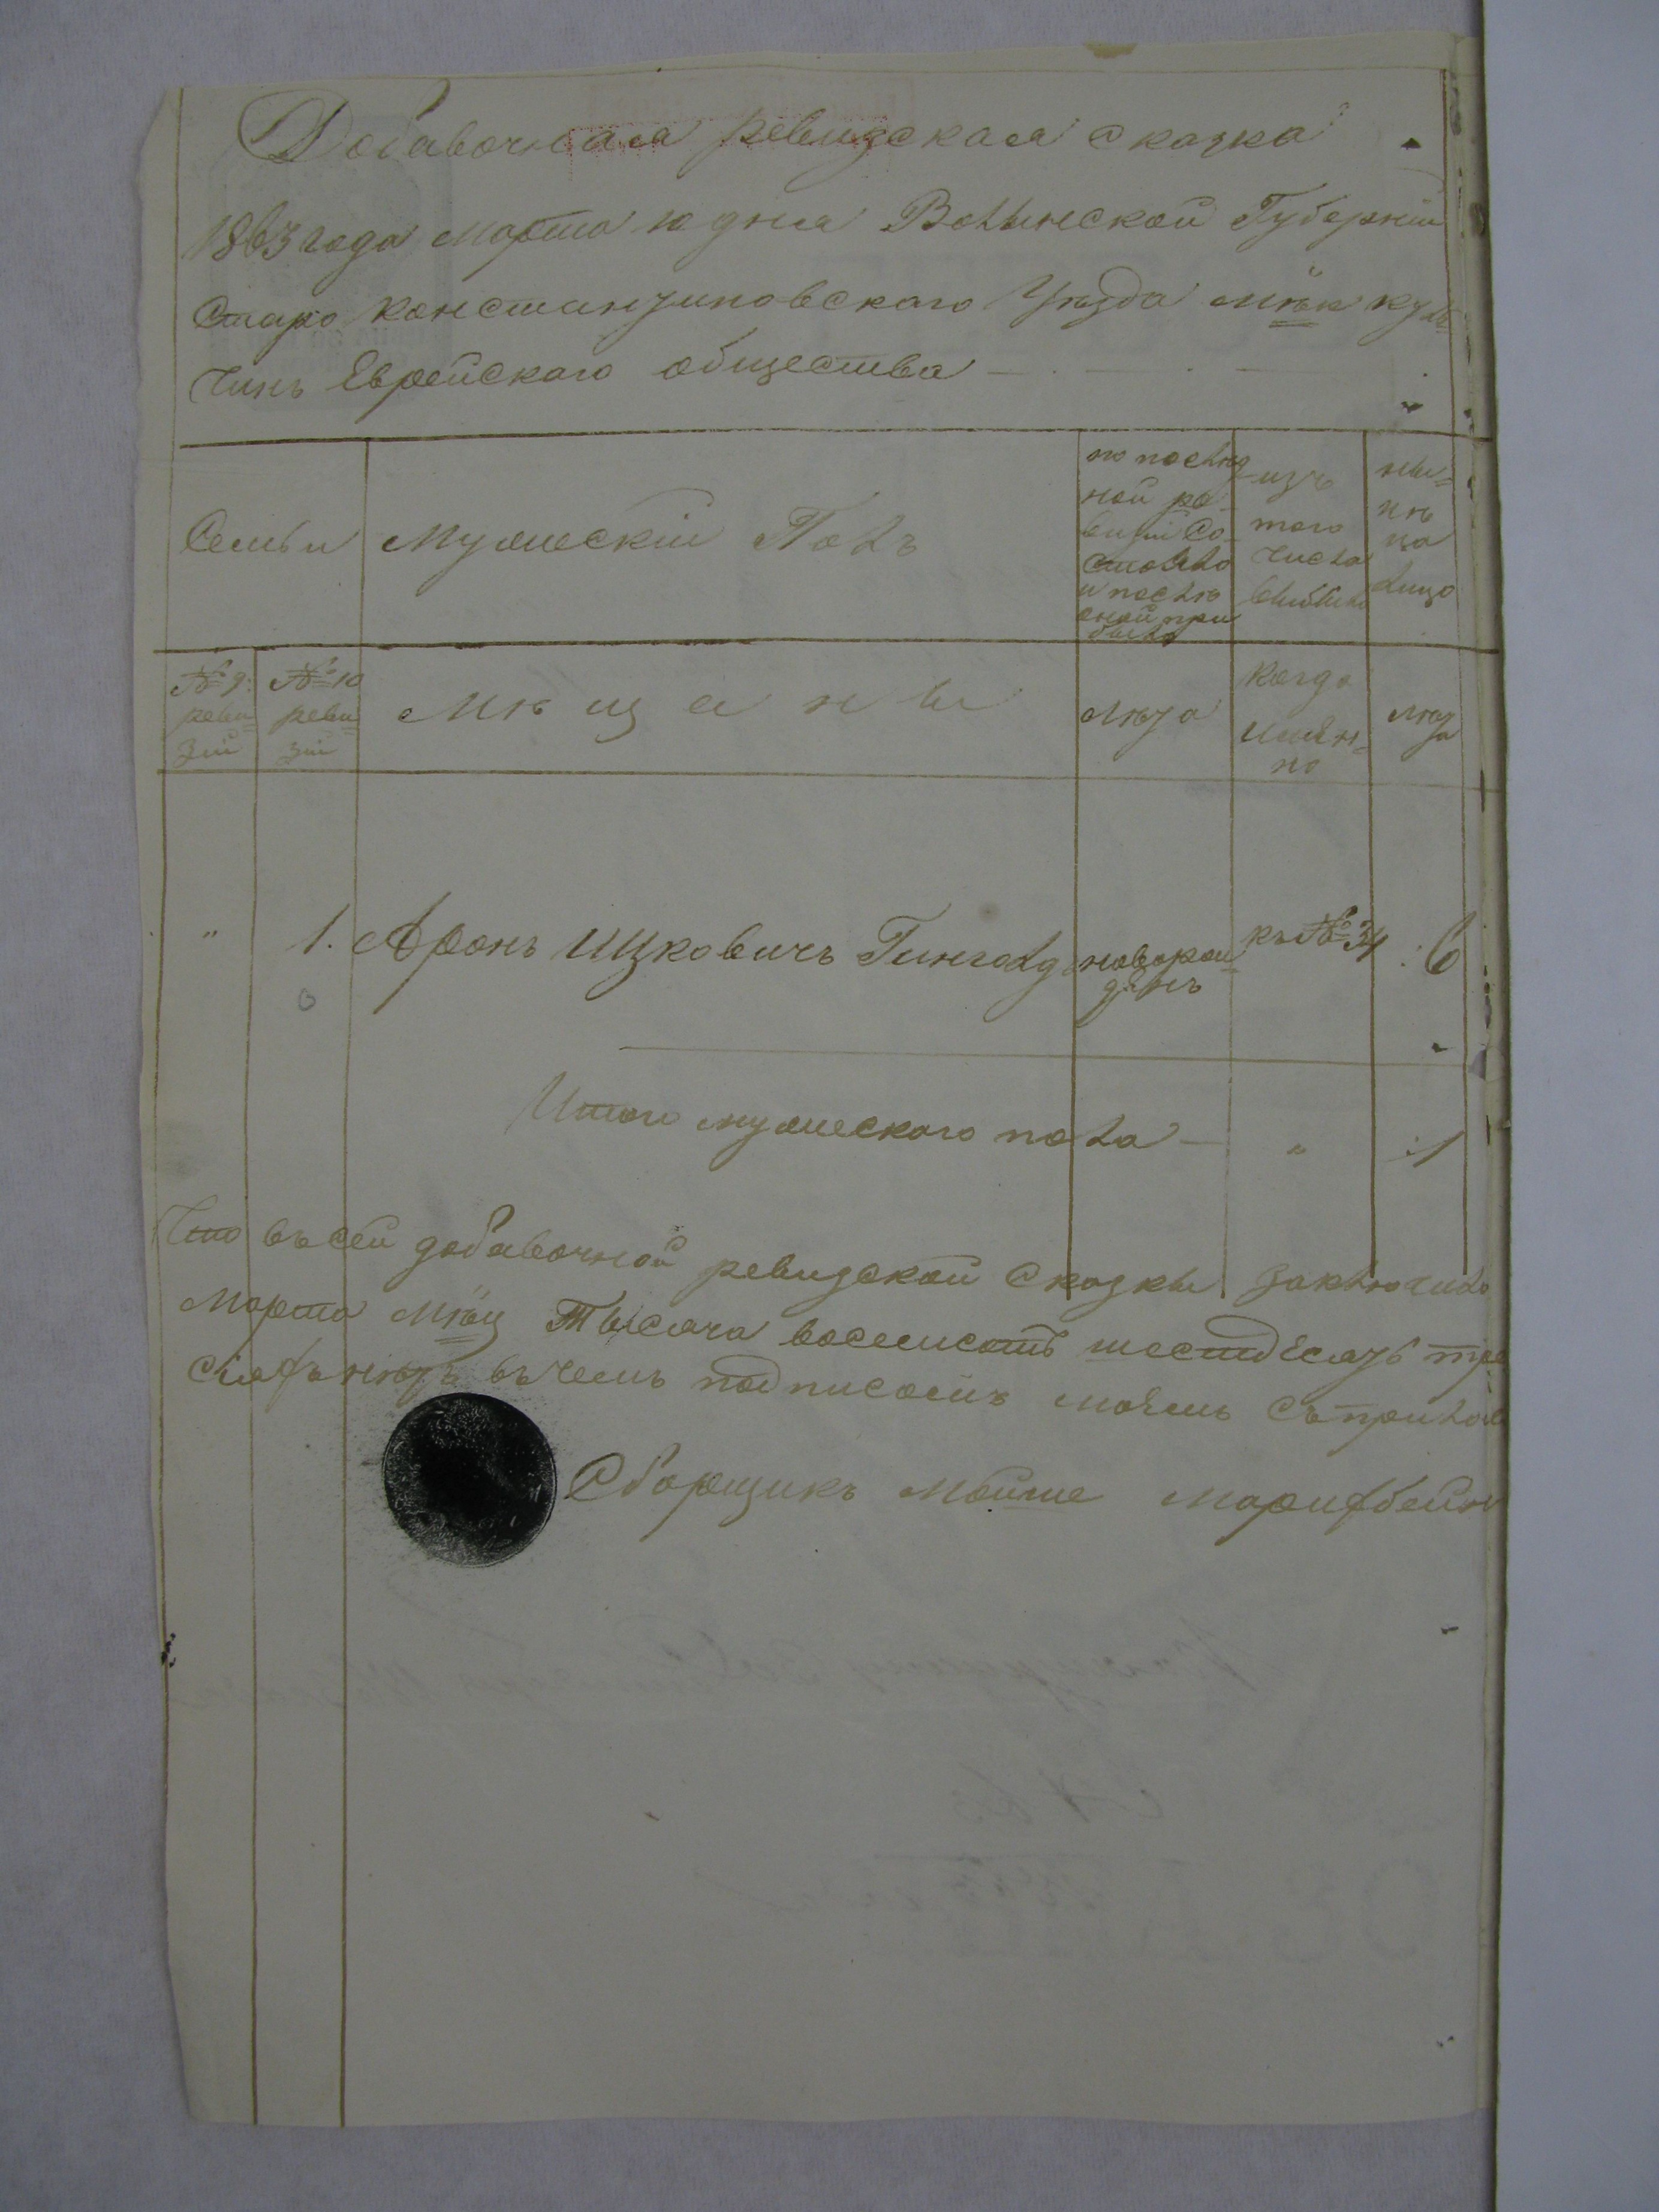 Добавочная ревизская сказка
1863 года марта 10 дня Волынской Губерніи
Старо Константиновскаго Уѣзда мѣк Куль
чинъ Еврейскаго общества
Семьи
Мужескій Полъ
по послѣд
ной ре
визіи Со
стояло
и послѣ
оной при
было
изъ
того
числа
выбыло
ны=
нѣ
на
лицо
№ 9
реви
зіи
№ 10
реви
зіи
Мѣщаны
Лѣта
Когда
имян=
но
Лѣта
" 1. Аронъ Ицковичъ Гинголд новорож
дЕнъ къ № 34 6
Итого мужескаго пола — " 1
Что въ сей добавочной ревизской Сказки заключило
Марта Мѣц Тысяча восемсотъ шестдЕсятъ тре
нѣтъ въ чемъ подписомъ моимъ Съ прилож
Сборщикъ Мойше